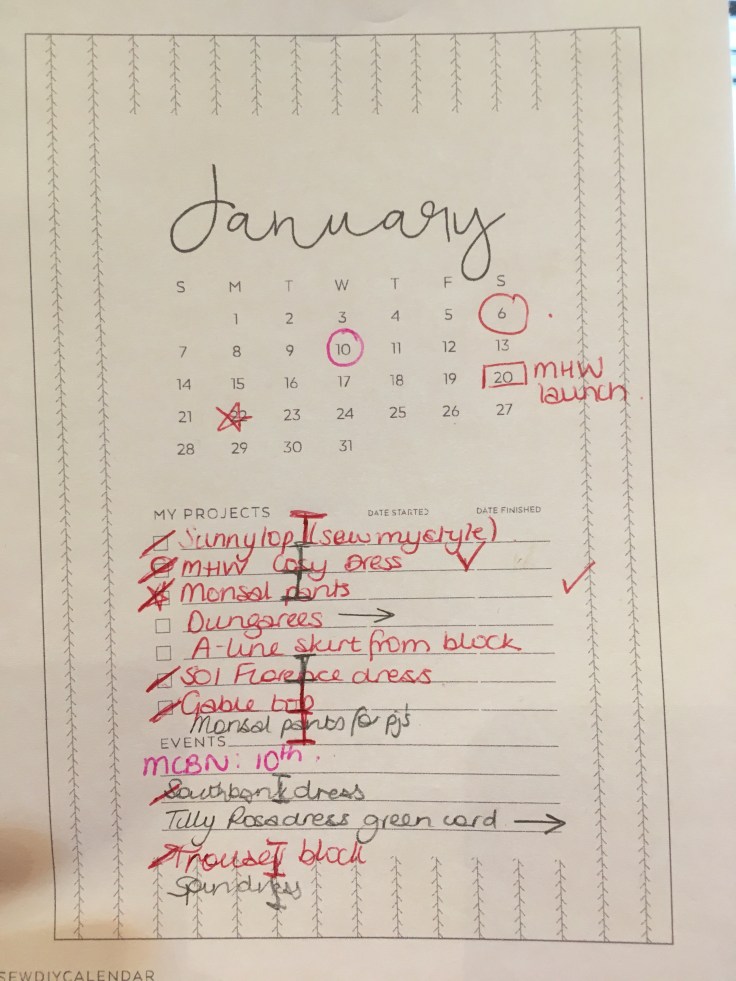 January
S M T W T F S
1 2 3 4 5 6
7 8 9 10 11 12 13
14 15 16 17 18 19 20 MHW
launch
21 22 23 24 25 26 27
28 29 30 31
MY PROJECTS DATE STARTED DATE FINISHED
Sunny top (sew my style)
MHW Cosy Dress
Monsal pants
Dungarees →
A-line skirt from block
SOI Florence dress
Gable top
Monsal pants for pj's
EVENTS
MCBN: 10th.
Southbank dress
Tilly Rosa dress green cord →
Trouser block
dress
SEWDIYCALENDAR